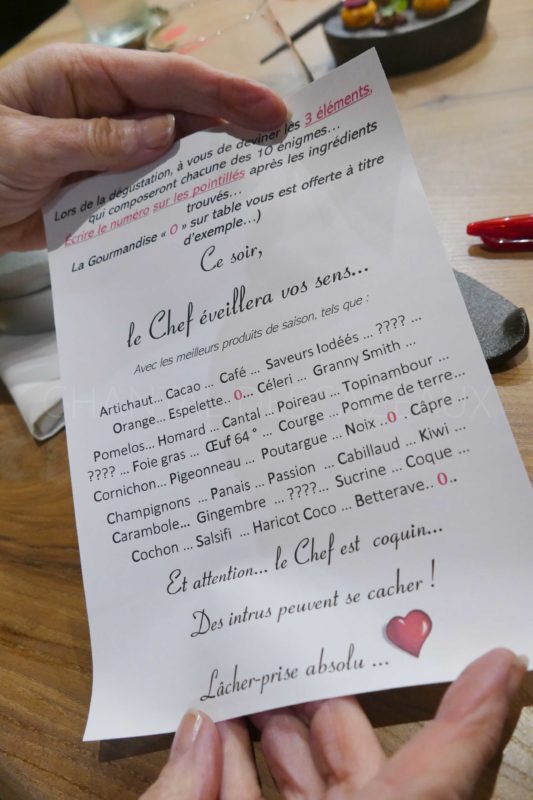 Lors de la dégustation, à vous de deviner les 3 éléments,
qui composeront chacune des 10 énigmes...
Ecrire le numéro sur les pointillés après les ingrédients
trouvés...
La Gourmandise « 0 » sur table vous est offerte à titre
d'exemple...)
Ce soir,
le Chef éveillera vos sens...
Avec les meilleurs produits de saison, tels que :
Artichaut... Cacao ... Café ... Saveurs Iodéés ... ???? ...
Orange... Espelette.. 0... Céleri ... Granny Smith ...
Pomelos... Homard ... Cantal ... Poireau ... Topinambour ...
???? ... Foie gras ... Œuf 64 ° ... Courge ... Pomme de terre...
Cornichon... Pigeonneau ... Poutargue ... Noix .. 0. . Câpre ...
Champignons ... Panais ... Passion ... Cabillaud ... Kiwi ...
Carambole... Gingembre ... ????... Sucrine ... Coque ...
Cochon ... Salsifi ... Haricot Coco ... Betterave.. 0..
Et attention... le Chef est coquin...
Des intrus peuvent se cacher !
Lâcher-prise absolu ...